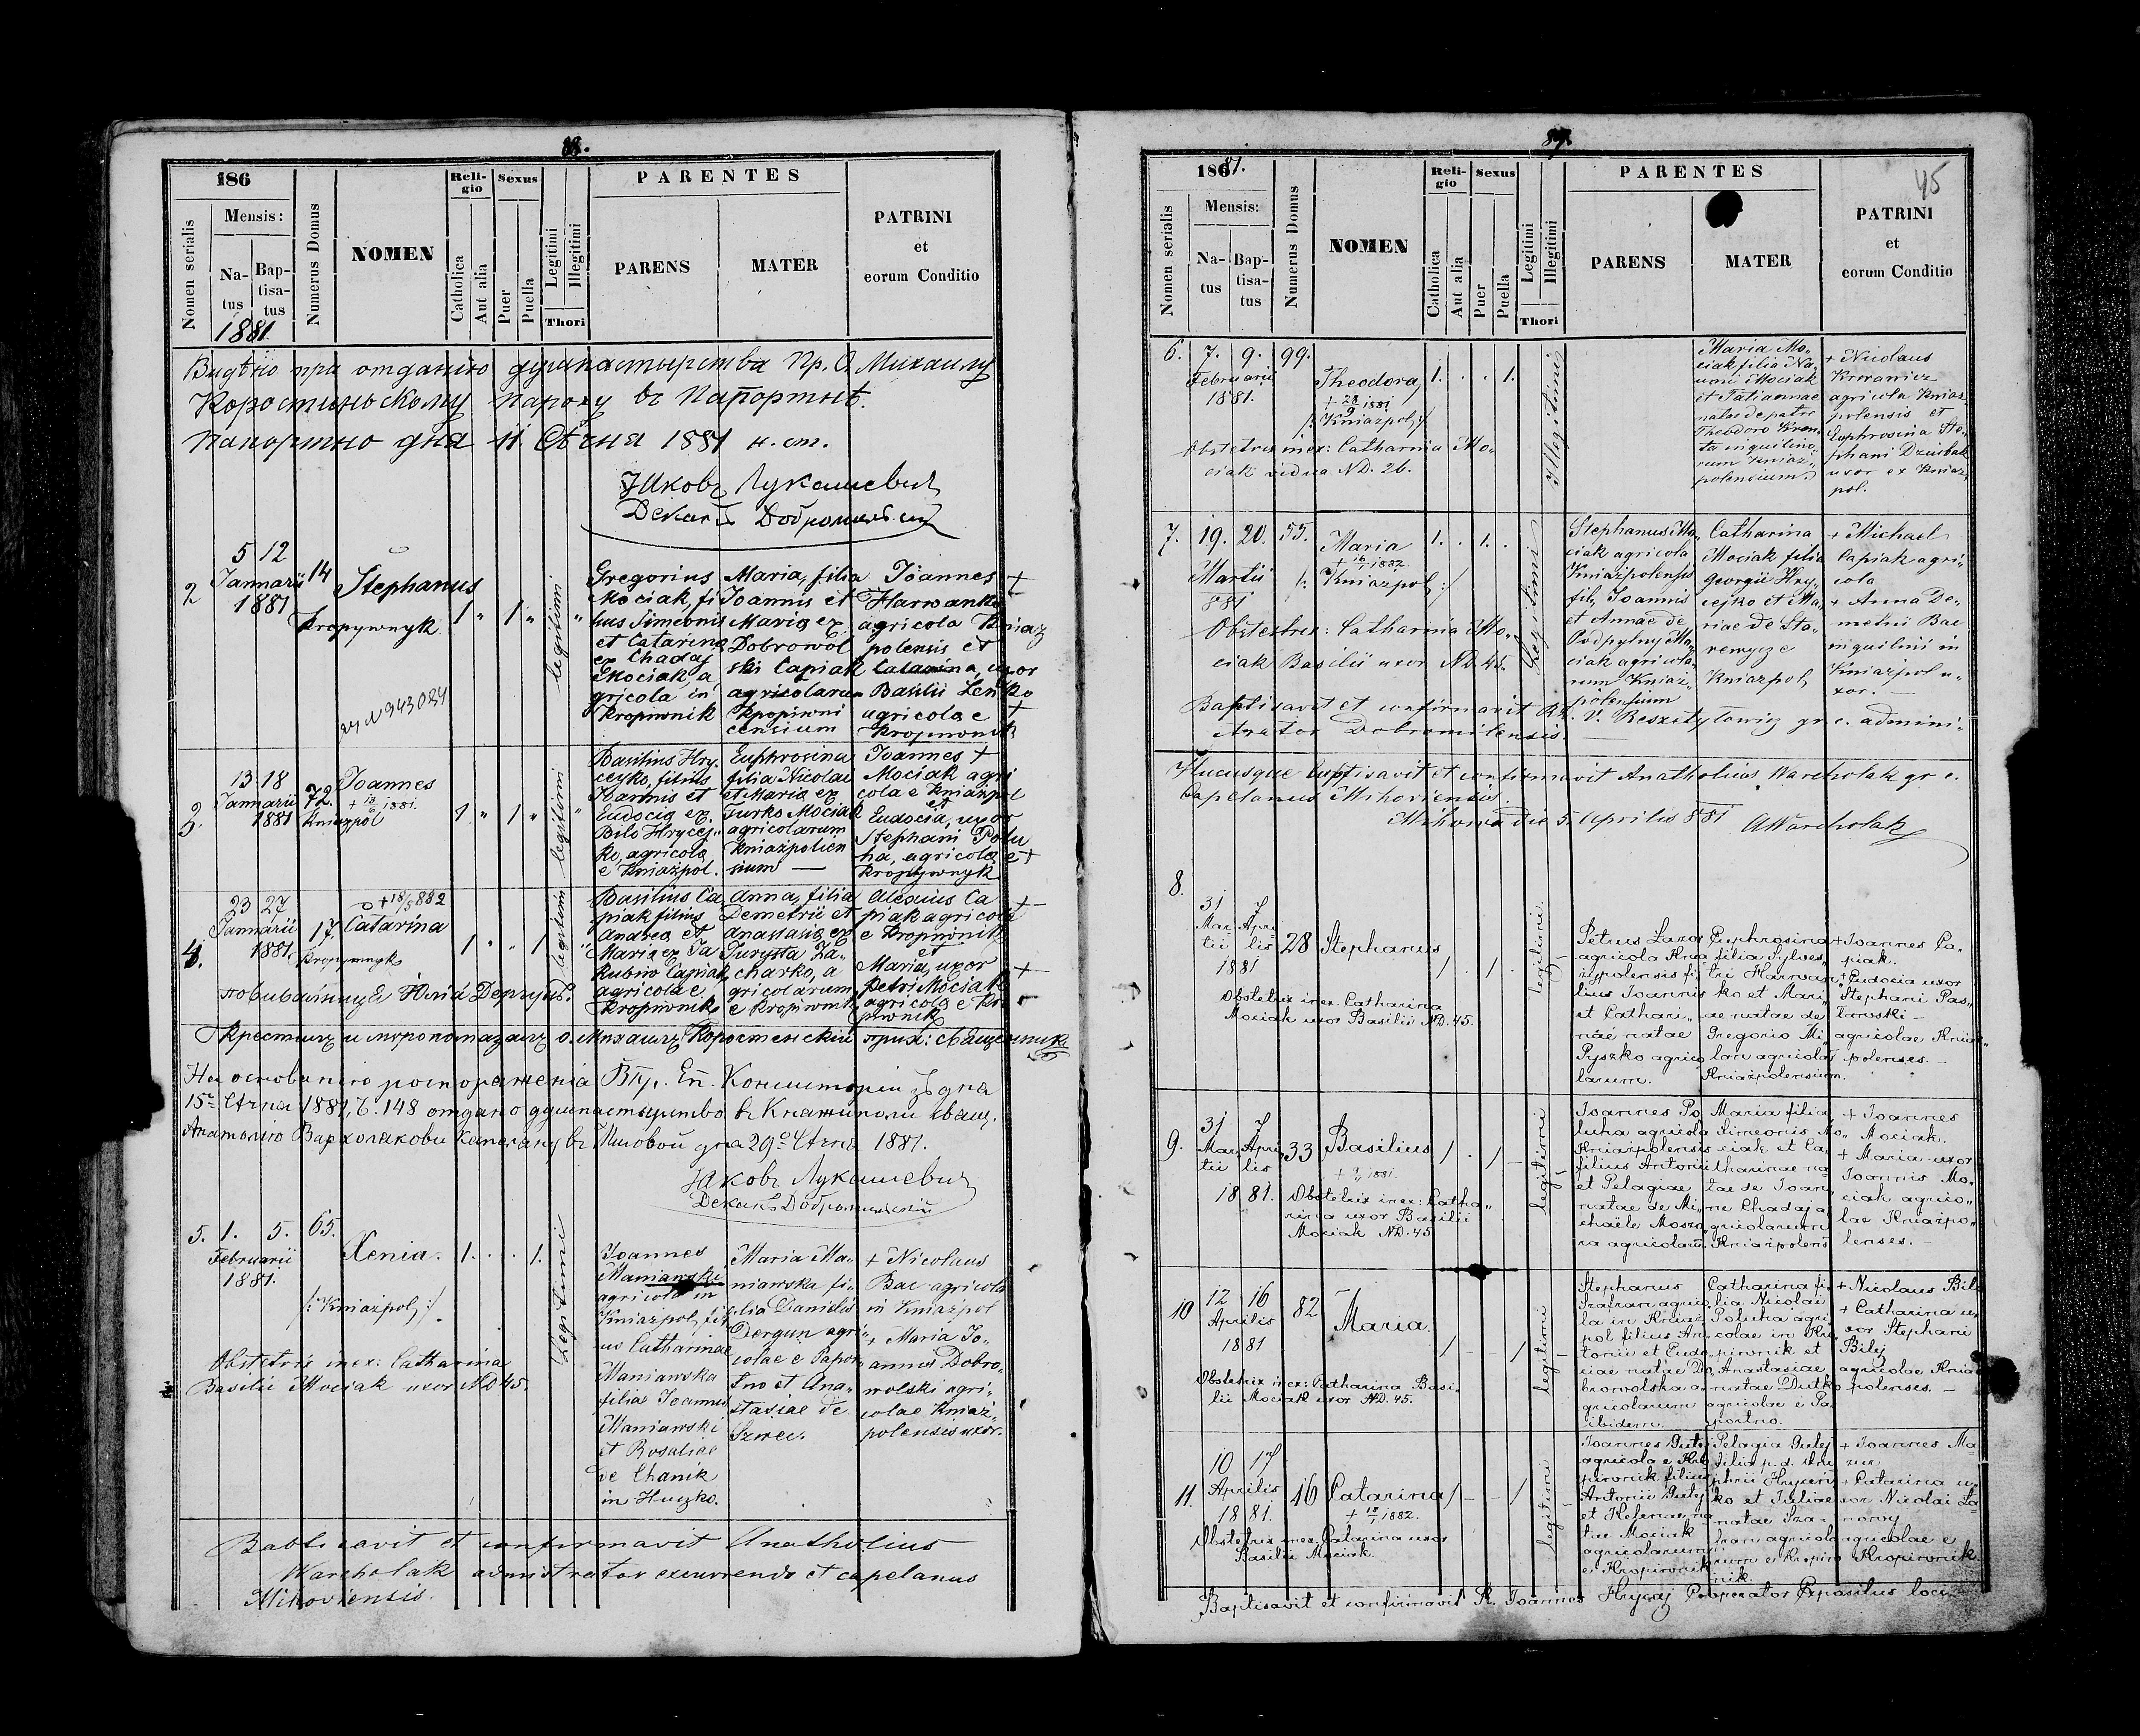 88.
186
Nomen serialis
Mensis:
Natus
Baptisatus
1881.
Numerus Domus
NOMEN
Religio
Catholica
Aut alia
Sexus
Puer
Puella
Legitimi
Illegitimi
Thori
PARENTES
PARENS
MATER
PATRINI
et
eorum Conditio
Видѣно при отданію душпастырства Пр. О. Михаилу
Коростиньскому пароху въ Папортнѣ.
Папортно дня 11. Сѣчня 1881 н. ст.
Яковъ Лукашевич
Деканъ Добромильскій
2
5 12
Januarii
1881
14
Stephanus
Kropywnyk
1 " 1 " "
legitimi
Gregorius
Mociak, fi
lius Simeonis
et Catarina
ex Chadaj
Mociak, a
gricola in
Kropiwnik
Maria, filia
Joannis et
Maria ex
Dobrowol
ski Capiak
agricolarum
Kropiwni
censium
Joannes +
Harwanko
agricola Kniaz
polensis et
Catarina, uxor
Basilii Lenko
agricola e +
Kropiwnik
3.
13 18
Januarii
1881
72.
Joannes
1881.
Kniażpol
1 " 1 " "
legitimi
Basilius Hry
ceyko, filius
Joannis et
Eudocia ex
Bilo Hrycej-
ko, agricola
e Kniażpol.
Euphrosina
filia Nicolai
et Maria ex
Turko Mociak
agricolarum
Kniażpolien
sium —
Joannes +
Mociak agri
cola e Kniażpol
et
Eudocia, uxor
Stephani Polu
ha, agricola e +
Kropywnyk
4.
23 27
Januarii
1881.
17.
+ 18/5 882
Catarina
Kropywnyk
1 " " 1 "
legitimi
Basilius Ca
piak filius
Andrea et
Maria ex Ja
kubiw Capiak
agricola e
Kropiwnik
Anna, filia
Demetrii et
Anastasia ex
Jurysta Za-
charko, a
gricolarum
e Kropiwnik
Alexius Ca +
piak agricola
e Kropiwnik
et
Maria, uxor
Petri Mociak +
agricola e Kro
piwnik
повивальниця Юлія Дергунъ.
Крестилъ и миропомазалъ о. Михаилъ Коростенскій прих: священникъ
На основи того розпоряженія Впр. Еп. Консисторіи зъ дна
15го Сѣчня 1881, Ч. 148 отдано душпастырство въ Княжиполи свящ.
Анатолію Вархолакови капелану въ Миговой дна 29го Сѣчня 1881.
Яковъ Лукашевич
Деканъ Добромильскій
5.
1. 5.
Februarii
1881.
65.
Xenia.
/: Kniażpol :/
1. . . 1.
Legitimi
Joannes
Maniawski
agricola in
Kniażpol, fili
us Catharinae
Maniawska
filia Joannis
Maniawski
et Rosaliae
de Chanik
in Huczko.
Maria Ma-
niawska fi-
lia Danielis
Dergun agri-
colae e Papor
tno et Ana-
stasiae de
Szwec.
+ Nicolaus
Bac agricola
in Kniażpol
+ Maria Jo-
annis Dobro-
wolski agri-
colae Kniaż-
polensis uxor.
Obstetrix inex: Catharina
Basilii Mociak uxor ND 45.
Babtisavit et confirmavit Anatholius
Warcholak admistrator excurrendo et capelanus
Mihoviensis.
89.
45
1881.
Nomen serialis
Mensis:
Natus
Baptisatus
Numerus Domus
NOMEN
Religio
Catholica
Aut alia
Sexus
Puer
Puella
Legitimi
Illegitimi
Thori
PARENTES
PARENS
MATER
PATRINI
et
eorum Conditio
6.
7. 9.
Februarii
1881.
99.
Theodora,
+ 28/9 1881
/: Kniażpol :/
1. . . 1.
Illegitimi
Maria Mo-
ciak filia Na-
umi Mociak
et Tatiannae
natae de patre
Theodoro
inquilino-
rum Kniaż-
polensium.
+ Nicolaus
Krowawicz
agricola Kniaż
polensis et
Euphrosina Ste-
phani Dziubak
uxor ex Kniaż
pol.
Obstetrix inex: Catharina Mo-
ciak vidua ND. 26.
7.
19. 20.
Martii
881
55.
Maria
+ 16/1 1882.
/: Kniazpol :/
1. . 1. .
Legitimi
Stephanus Mo-
ciak agricola
Kniażpolensis
fil. Joannis
et Annae de
Podpylny Mo-
ciak agricola-
rum Kniaż-
polensium
Catharina
Mociak filia
Georgii Hry-
cejko et Ma-
riae de Sta-
remycze
Kniażpol,
+ Michael
Capiak agri-
cola
+ Anna De-
metrii Bac
inquilini in
Kniażpol u-
xor. —
Obstetrix: Catharina Mo-
ciak Basilii uxor ND. 45.
Baptisavit et confirmavit V. Reszetylowicz gr. c. admini-
strator Dobromilensis.
Hucusque baptisavit et confirmavit Anatholius Warcholak gr. c.
Capelanus Mihoviensis.
Mihowa die 5. Aprilis 881 AWarcholak
8.
31 7
Mar- Apri-
tii lis
1881
28
Stephanus
1 . 1 .
legitimi.
Petrus Lazor
agricola Knia
żypolensis fi-
lius Joannis
et Cathari-
nae natae
Pyszko agrico
larum.
Euphrosina
filia Sylves-
tri Harwan-
ko et Mari-
ae natae de
Gregorio Mi-
lan agricolar
Kniażpolensium.
+ Joannes Ca-
piak.
+ Eudocia uxor
Stephani Pas-
ławski —
agricolae Kniaż-
polenses. —
Obstetrix inex. Catharina
Mociak uxor Basilii ND. 45.
9.
31 7
Mar- Apri
tii lis
1881.
33
Basilius
1881.
1 . 1 —
legitimi
Joannes Po
luha agricola
Kniażpolensis
filius Antonii
et Pelagiae
natae de Mi-
chaële Mosza
ra agricolar.
Maria filia
Simeonis Mo-
ciak et Ca-
tharinae na
tae de Joan-
ne Chadaj a
gricolarum
Kniażpolens
+ Joannes
Mociak.
+ Maria uxor
Joannis Mo-
ciak agrico-
lae Kniażpo-
lenses. —
Obstetrix inex: Catha-
rina uxor Basilii
Mociak ND. 45
10
12 16
Aprilis
1881
82
Maria.
1 — — 1
legitimi
Stephanus
Szafran agrico
la in Kniaż
pol filius An-
tonii et Eudo-
ciae natae Do
browolska a-
gricolarum
ibidem.
Catharina fi-
lia Nicolai
Poluha agri
colae in Kro
piwnik et
Anastasiae
natae Dutko
agricolae e Pa
portno.
+ Nicolaus Bilej
+ Catharina u-
xor Stephani
Bilej
agricolae Kniaż
polenses. —
Obstetrix inex: Catharina Basi-
lii Mociak uxor ND. 45.
11.
10 17
Aprilis
1881.
16
Catarina
+ 18/1 1882.
1 — — 1
legitimi
Joannes Gulej
agricola e Kro
piwnik filius
Antonii Gulej
et Helenae na
tae Mociak
agricolarum
e Kropiwnik
Pelagia Gulej
filia p. d. Onu
phrii Hrycen
ko et Juliae
natae Sza-
fran agricola
rum e Kropiw
nik.
+ Joannes Ma
zur.
+ Catarina u-
xor Nicolai La-
nowy
agricolae e
Kropiwnik.
Obstetrix inex. Catarina uxor
Basilii Mociak.
Baptisavit et confirmavit R. Joannes Hrycaj Cooperator Expositus loci